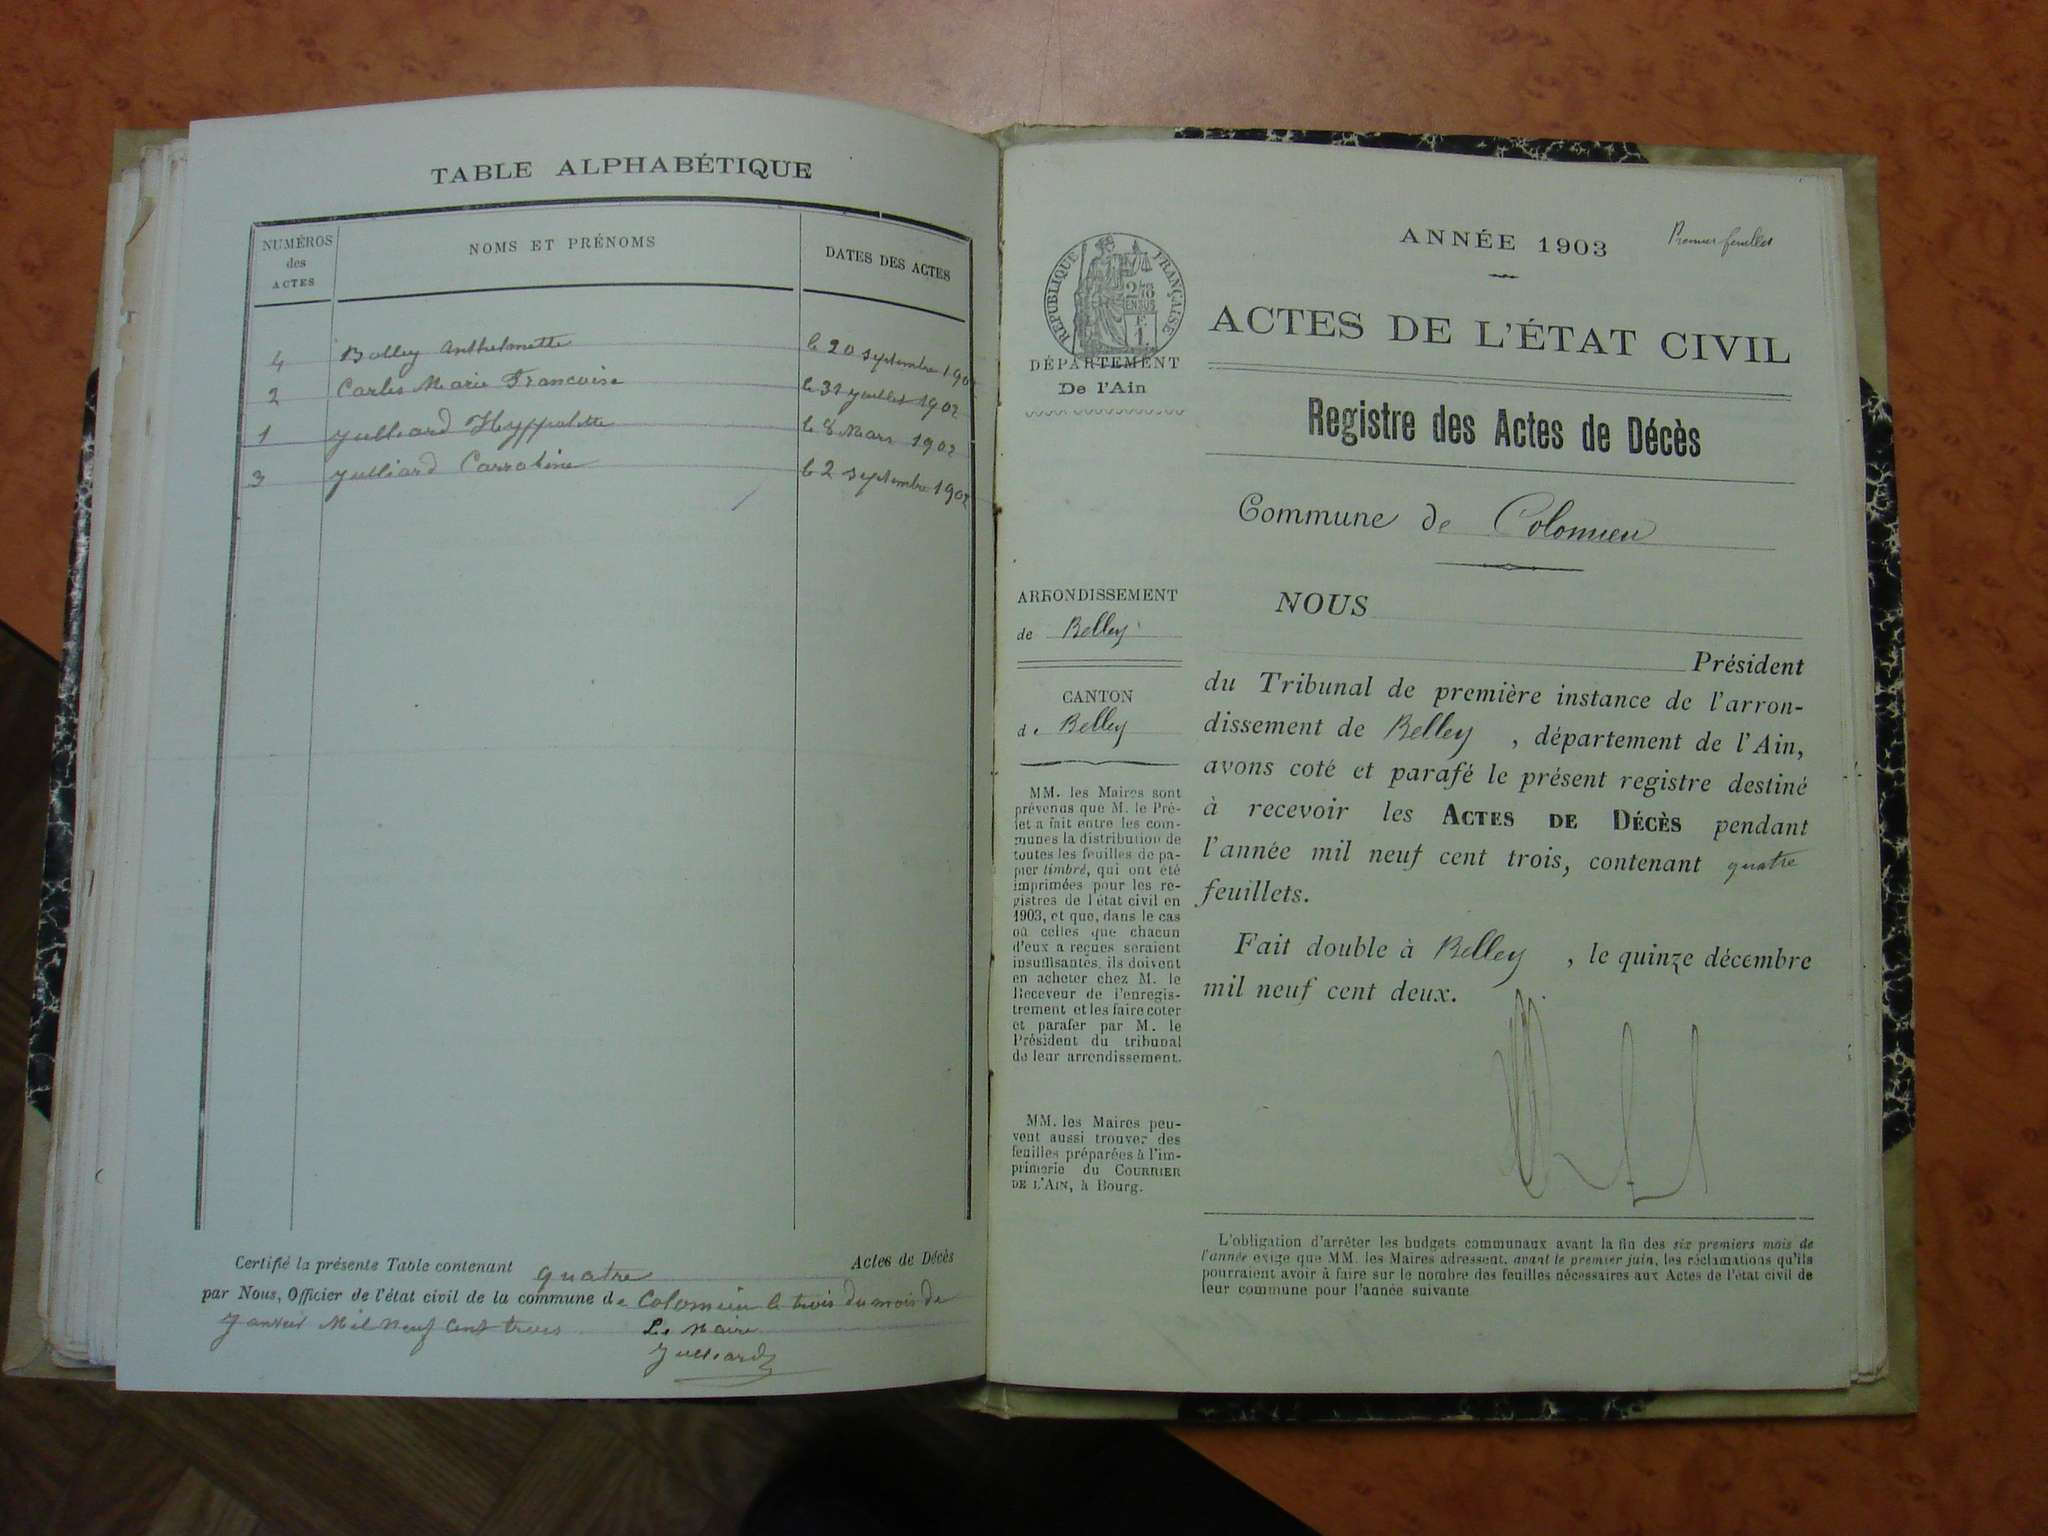 TABLE ALPHABÉTIQUE
NUMÉROS
des
ACTES
NOMS ET PRÉNOMS
DATES DES ACTES
4 Bolley Anthelmette le 20 septembre 1902
2 Carles Marie Francoise le 31 juillet 1902
1 Julliard Hyppolitte le 8 Mars 1902
3 Julliard Carroline le 2 septembre 1902
Certifié la présente Table contenant quatre Actes de Décès
par Nous, Officier de l'état civil de la commune de Colomieu le trois du mois de
Janvier Mil Neuf Cent trois Le Maire
Julliard
Premier feuillet
ANNÉE 1903
RÉPUBLIQUE FRANÇAISE
DÉPARTEMENT
De l'Ain
ACTES DE L'ÉTAT CIVIL
Registre des Actes de Décès
Commune de Colomieu
ARRONDISSEMENT
de Belley
CANTON
de Belley
MM. les Maires sont
prévenus que M. le Pré-
fet a fait entre les com-
munes la distribution de
toutes les feuilles de pa-
pier timbré, qui ont été
imprimées pour les re-
gistres de l'état civil en
1903, et que, dans le cas
où celles que chacun
d'eux a reçues seraient
insuffisantes, ils doivent
en acheter chez M. le
Receveur de l'enregis-
trement et les faire coter
et parafer par M. le
Président du tribunal
de leur arrondissement.
MM. les Maires peu-
vent aussi trouver des
feuilles préparées à l'im-
primerie du COURRIER
DE L'AIN, à Bourg.
NOUS
Président
du Tribunal de première instance de l'arron-
dissement de Belley, département de l'Ain,
avons coté et parafé le présent registre destiné
à recevoir les ACTES DE DÉCÈS pendant
l'année mil neuf cent trois, contenant quatre
feuillets.
Fait double à Belley, le quinze décembre
mil neuf cent deux.
L'obligation d'arrêter les budgets communaux avant la fin des six premiers mois de
l'année exige que MM. les Maires adressent, avant le premier juin, les réclamations qu'ils
pourraient avoir à faire sur le nombre des feuilles nécessaires aux Actes de l'état civil de
leur commune pour l'année suivante